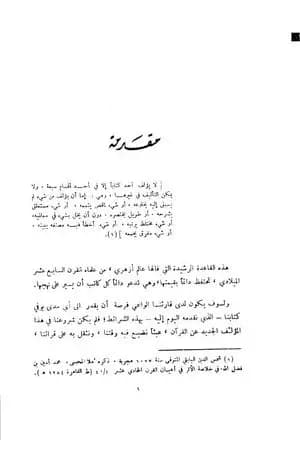 مقدمة
[ لا يؤلف أحد كتابا إلا في أحد أقسام سبعة ، ولا
يمكن التأليف في غيرها ، وهي : إما أن يؤلف من شيء لم
يسبق إليه يخترعه ، أو شيء ناقص يتممه ، أو شيء مستغلق
يشرحه ، أو طويل يختصره ، دون أن يخل بشيء في معانيه،
أو شيء مختلط يرتبه ، أو شيء أخطأ فيه مصنفه يبينه ،
أو شيء مفرق يجمعه ] (١) .
هذه القاعدة الرشيدة التي قالها عالم أزهري « من علماء القرن السابع عشر
الميلادي » تحتفظ دائماً بقيمتها، وهي تدعو دائماً كل كاتب أن يسير على نهجها.
ولسوف يكون لدى قارئنا الواعي فرصة أن يقدر إلى أي مدى يوفي
كتابنا – الذي نقدمه اليوم إليه – بهذه الشرائط ؛ فلم يكن شروعنا في هذا
المؤلف الجديد عن القرآن « عبثاً نضيع فيه وقتنا ، ونثقل به على قرائنا ،
(١) شمس الدين البابلي المتوفي سنة هجرية ، ذكره محمد أمين بن
فضل الله في خلاصة الأثر في أعيان القرن الحادي عشر ٤١/٤ ( ط القاهرة ١٢٨٤ هـ ) .